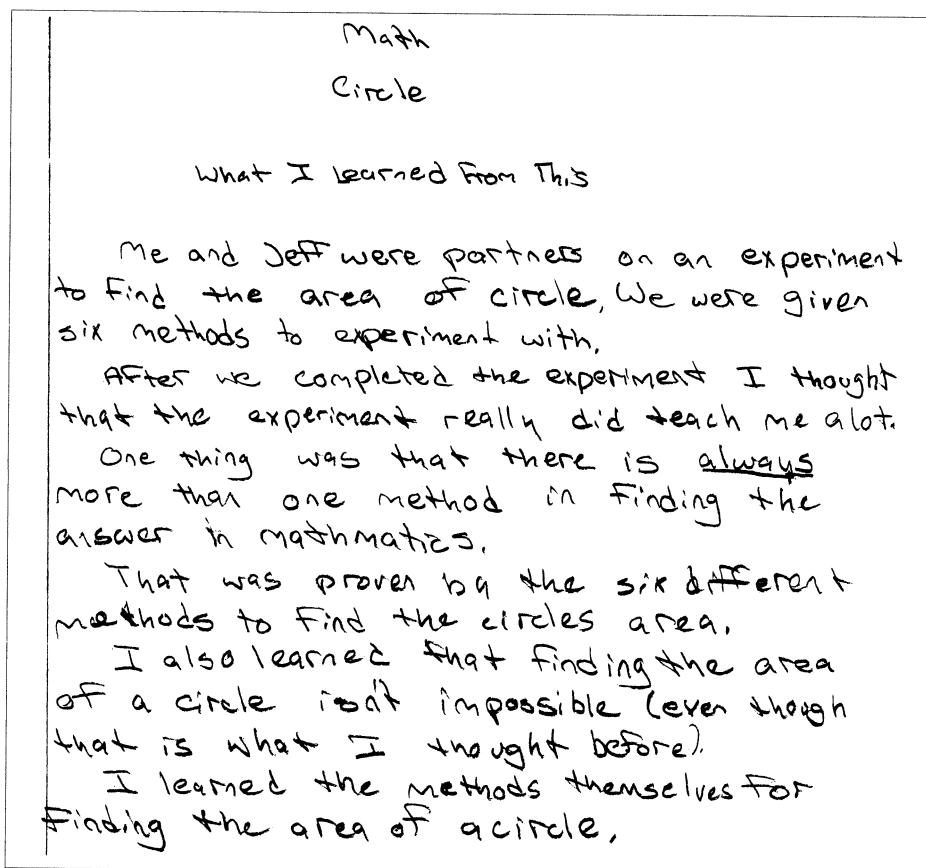 Math
Circle
What I Learned From This
Me and Jeff were partners on an experiment
to find the area of circle, We were given
six methods to experiment with.
After we completed the experiment I thought
that the experiment really did teach me alot.
One thing was that there is always
more than one method in finding the
answer in mathmatics.
That was proven by the six different
methods to find the circles area.
I also learned that finding the area
of a circle isn't impossible (even though
that is what I thought before).
I learned the methods themselves for
finding the area of a circle.